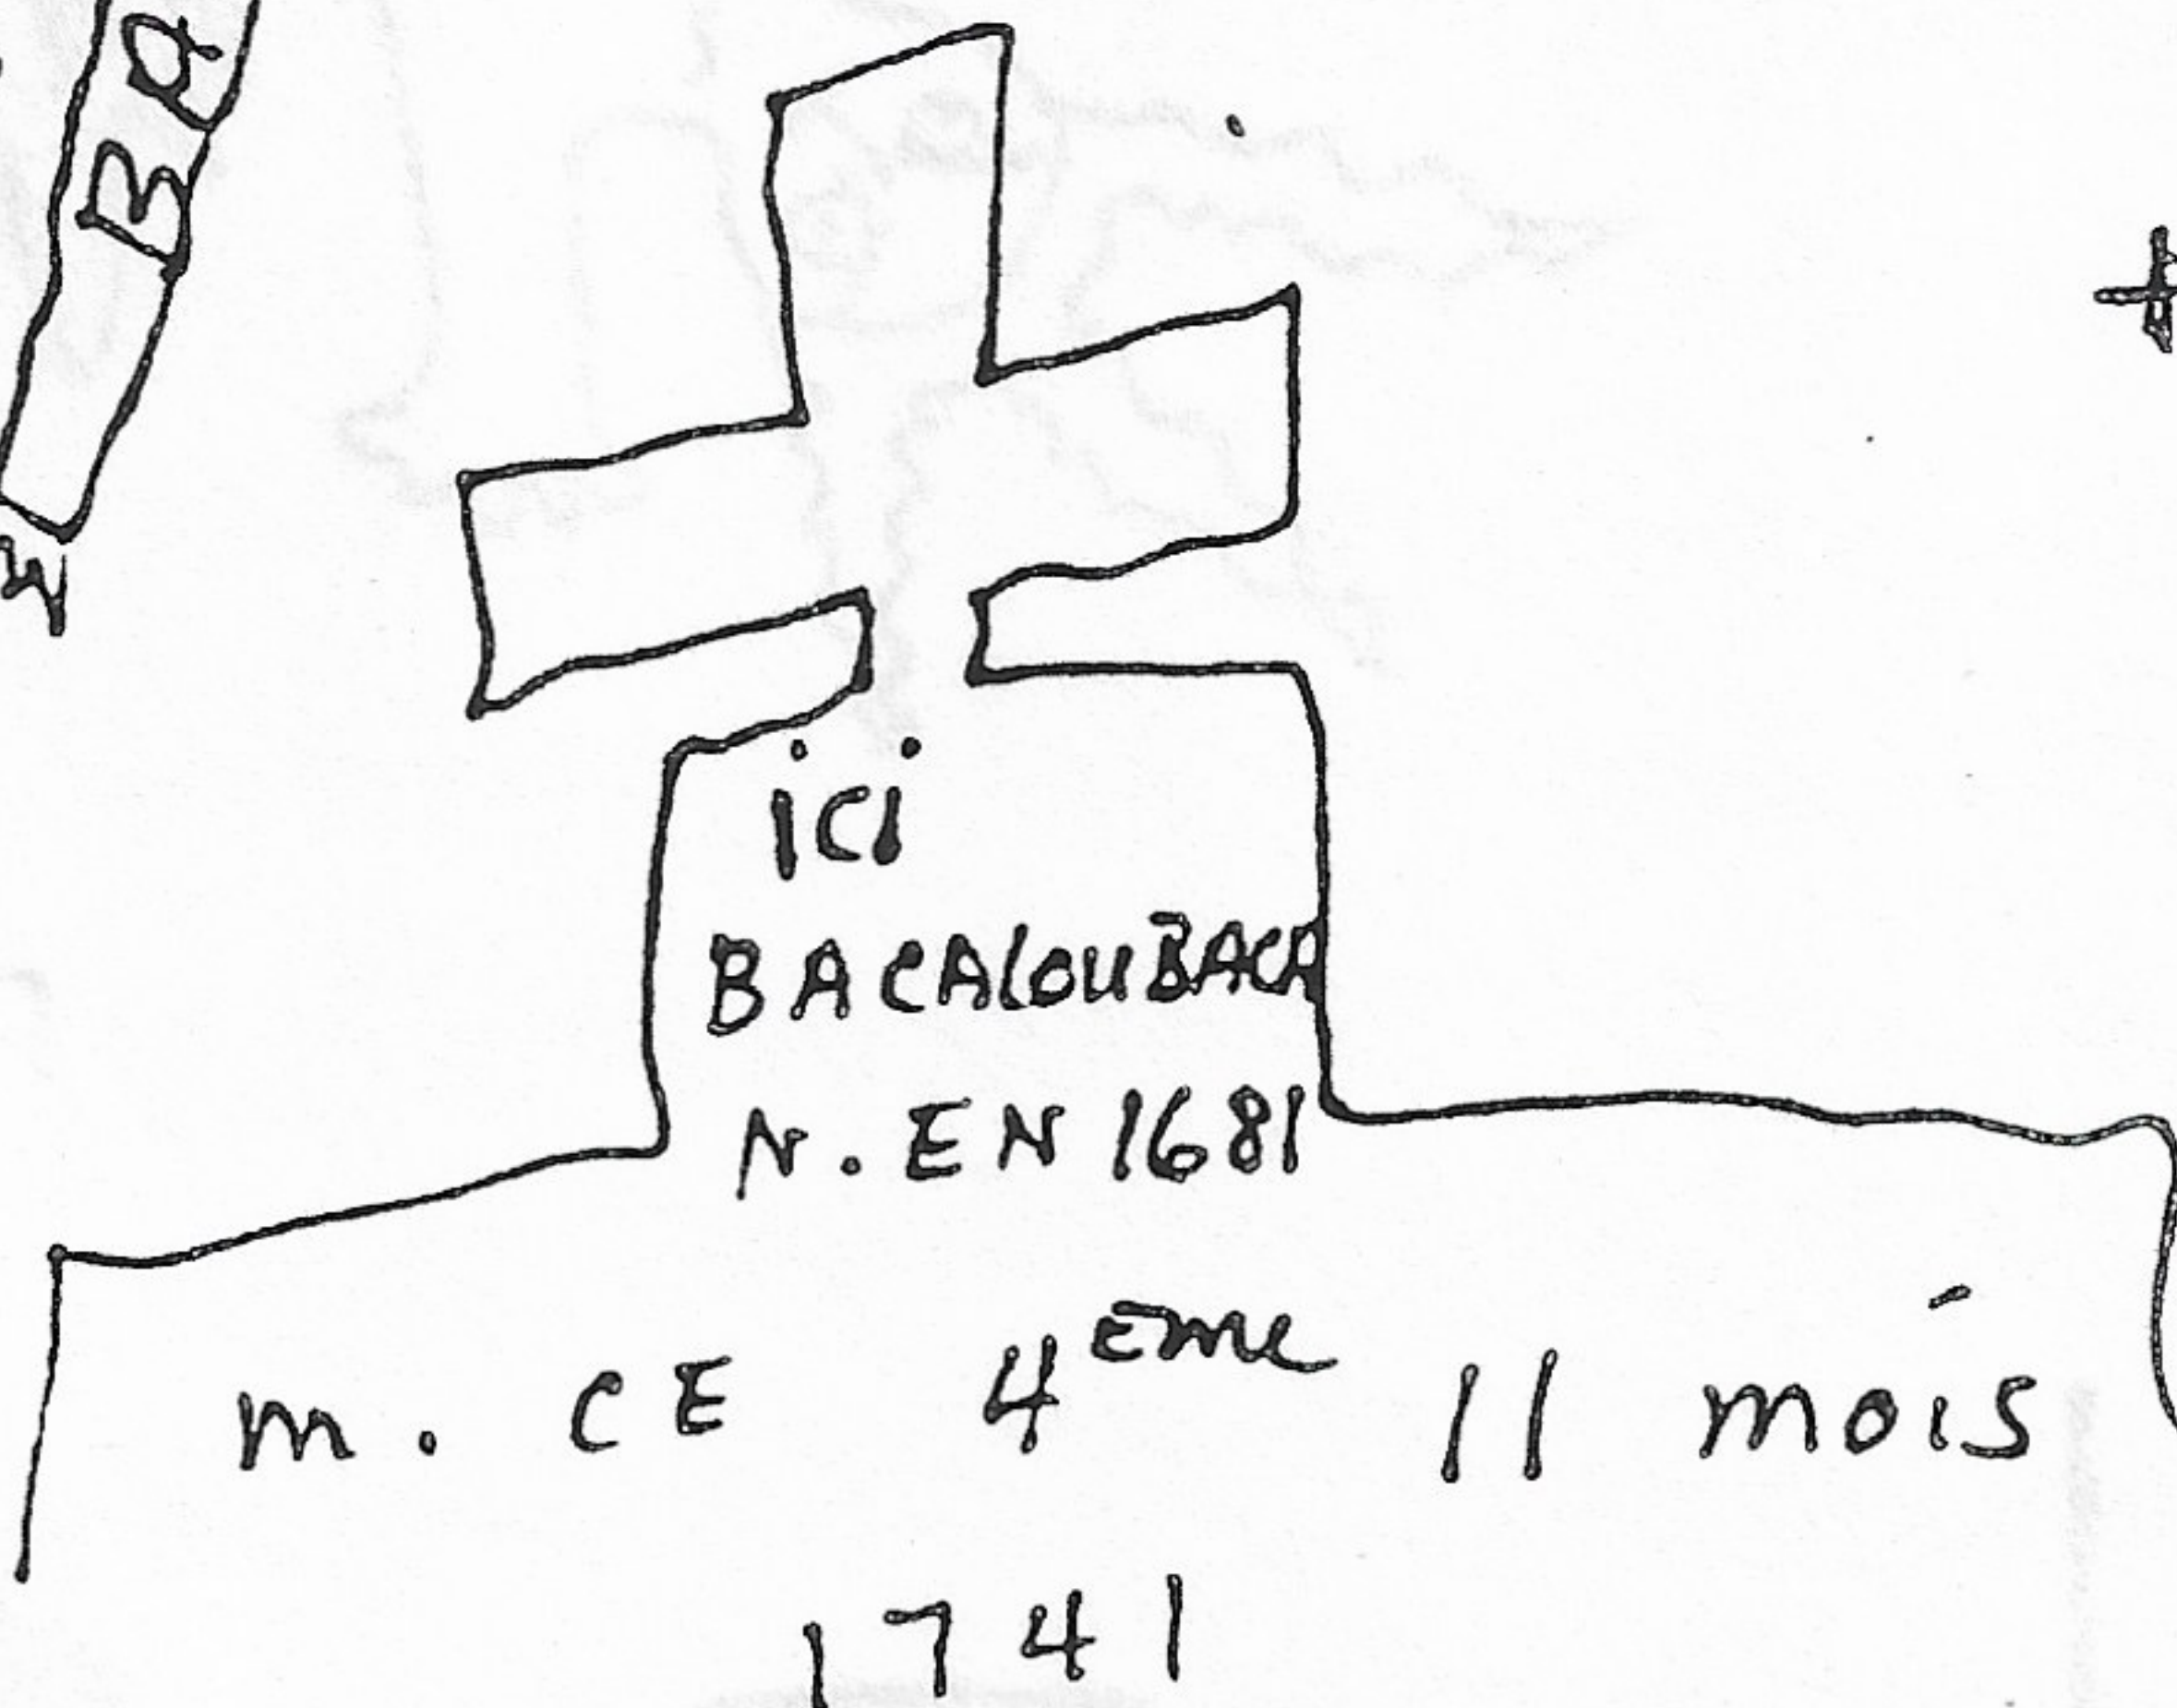 BA
ici
BACALOUBACA
N. EN 1681
m. CE 4eme 11 mois
1741